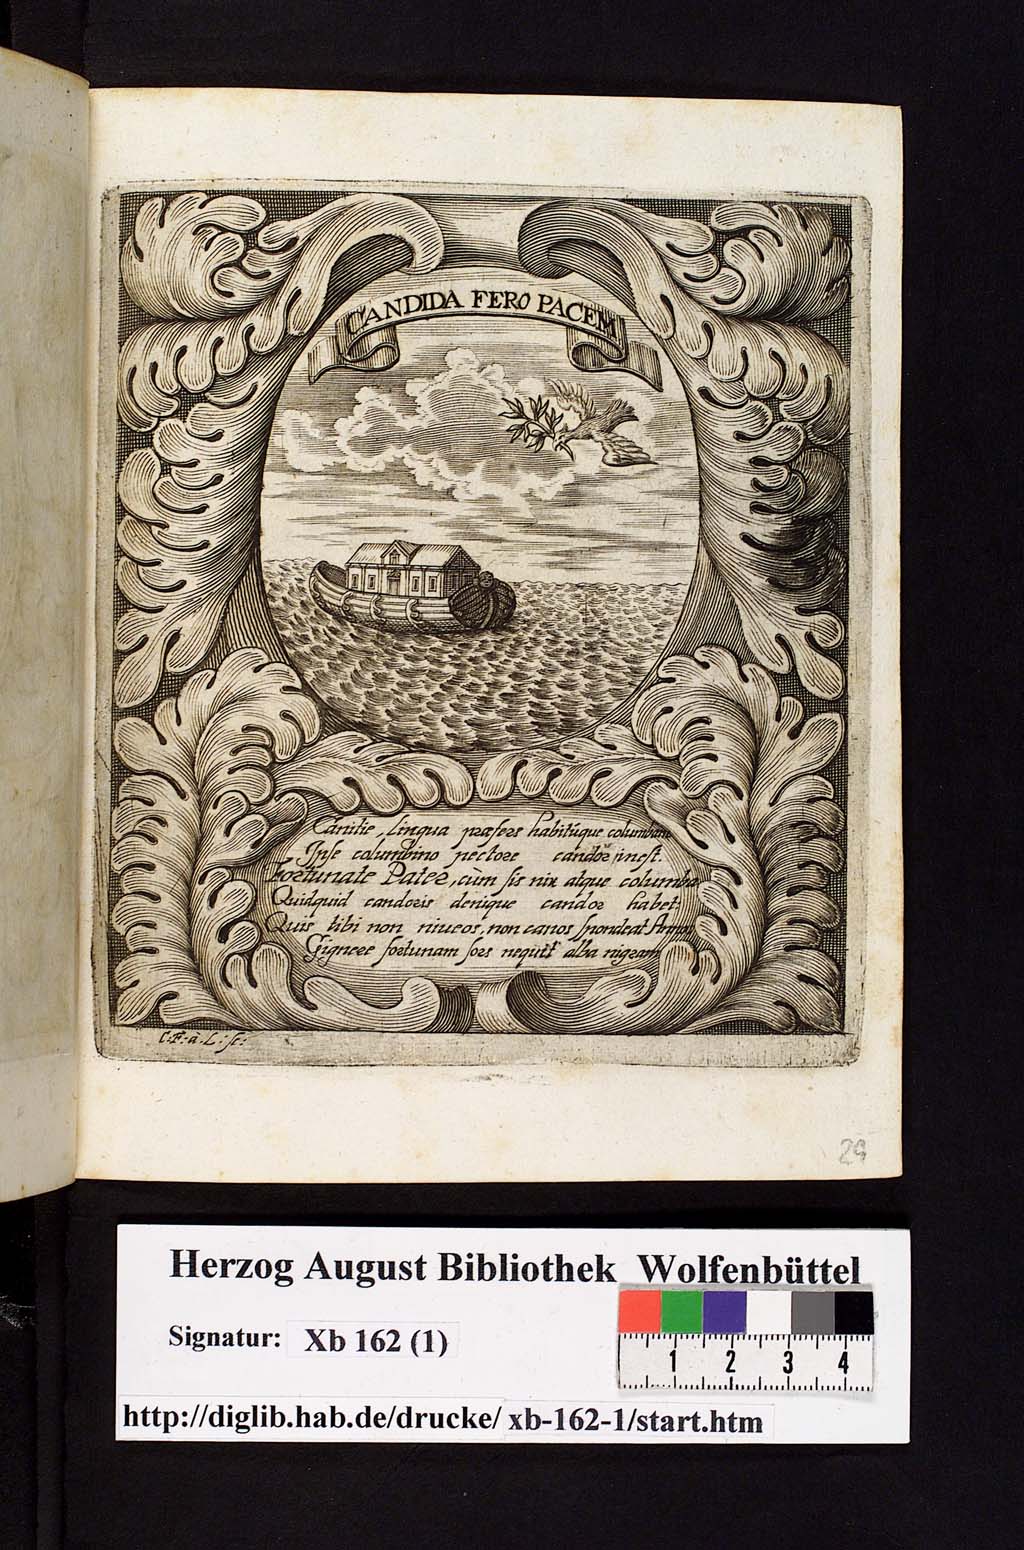 CANDIDA FERO PACEM
Canitie, lingua præfers habitúque columbam
Ipse columbino pectore candor inest.
Fortunate Pater, cùm sis nix atque columba
Quidquid candoris denique candor habet:
Quis tibi non niueos, non canos spondeat Annos
Gignere fortunam sors nequit alba nigram
C.F.a.L.sc:
29
Herzog August Bibliothek Wolfenbüttel
Signatur: Xb 162 (1)
1 2 3 4
http://diglib.hab.de/drucke/ xb-162-1/start.htm